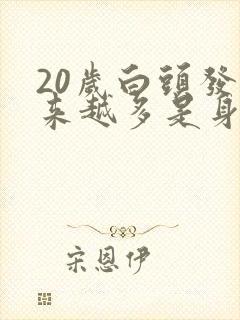 20歲白頭發
來越多是身
宋恩伊